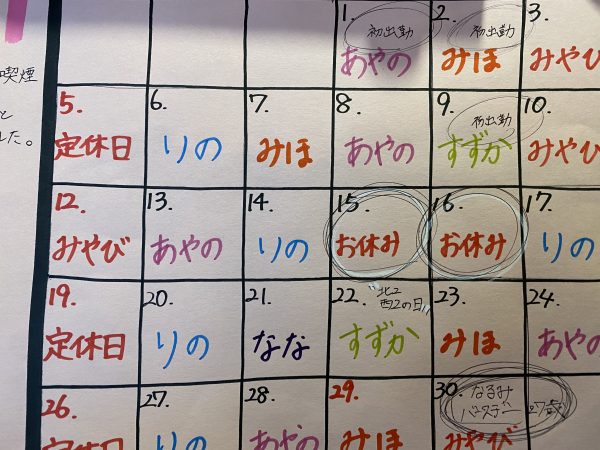 喫煙
と
した。
1. 初出勤
あやの
2. 初出勤
みほ
3.
みやび
5.
定休日
6.
りの
7.
みほ
8.
あやの
9. 初出勤
すずか
10.
みやび
12.
みやび
13.
あやの
14.
りの
15.
お休み
16.
お休み
17.
りの
19.
定休日
20.
りの
21.
なな
22. "北2
西2の日"
すずか
23.
みほ
24.
あやの
26.
定休日
27.
りの
28.
あやの
29.
みほ
30. なるみ
バースデー 27歳
みやび